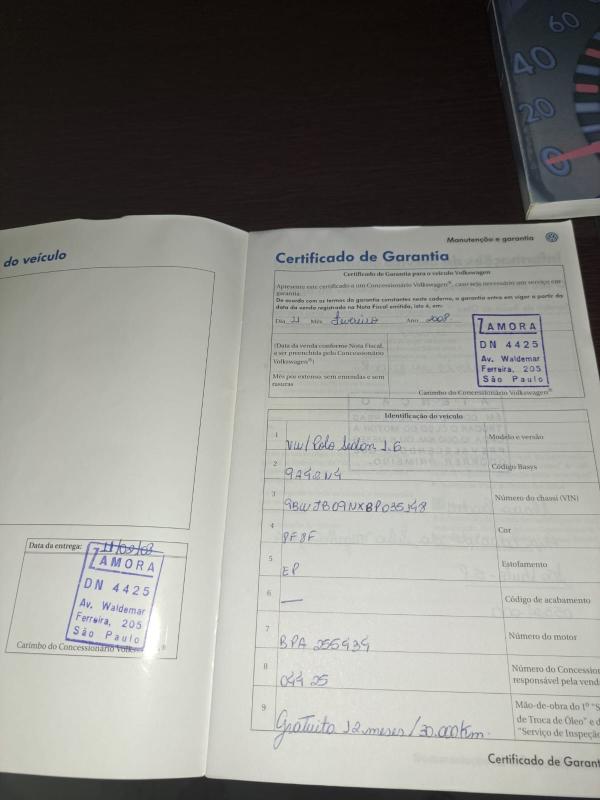 60
40
20
0
do veículo
Data da entrega:
ZAMORA
DN 4425
Av. Waldemar
Ferreira, 205
São Paulo
Carimbo do Concessionário Volkswagen®
Manutenção e garantia
Certificado de Garantia
Certificado de Garantia para o veículo Volkswagen
Apresente este certificado a um Concessionário Volkswagen®, caso seja necessário um serviço em
garantia.
De acordo com os termos da garantia constantes neste caderno, a garantia entra em vigor a partir da
data da venda registrada na Nota Fiscal emitida, isto é, em:
Dia 11 Mês Ano 2008.
(Data da venda conforme Nota Fiscal,
a ser preenchida pelo Concessionário
Volkswagen®)
Mês por extenso, sem emendas e sem
rasuras
ZAMORA
DN 4425
Av. Waldemar
Ferreira, 205
São Paulo
Carimbo do Concessionário Volkswagen®
Identificação do veículo
1 VW/Polo Sedan 1.6 Modelo e versão
2 9A42N4 Código Basys
3 Número do chassi (VIN)
4 8F8F Cor
5 EP Estofamento
6 — Código de acabamento
7 BPA 255434 Número do motor
8 044 25 Número do Concession
responsável pela vend
9 Gratuito 12 meses/30.000Km. Mão-de-obra do 1º "S
de Troca de Óleo" e d
"Serviço de Inspeçã
Certificado de Garant